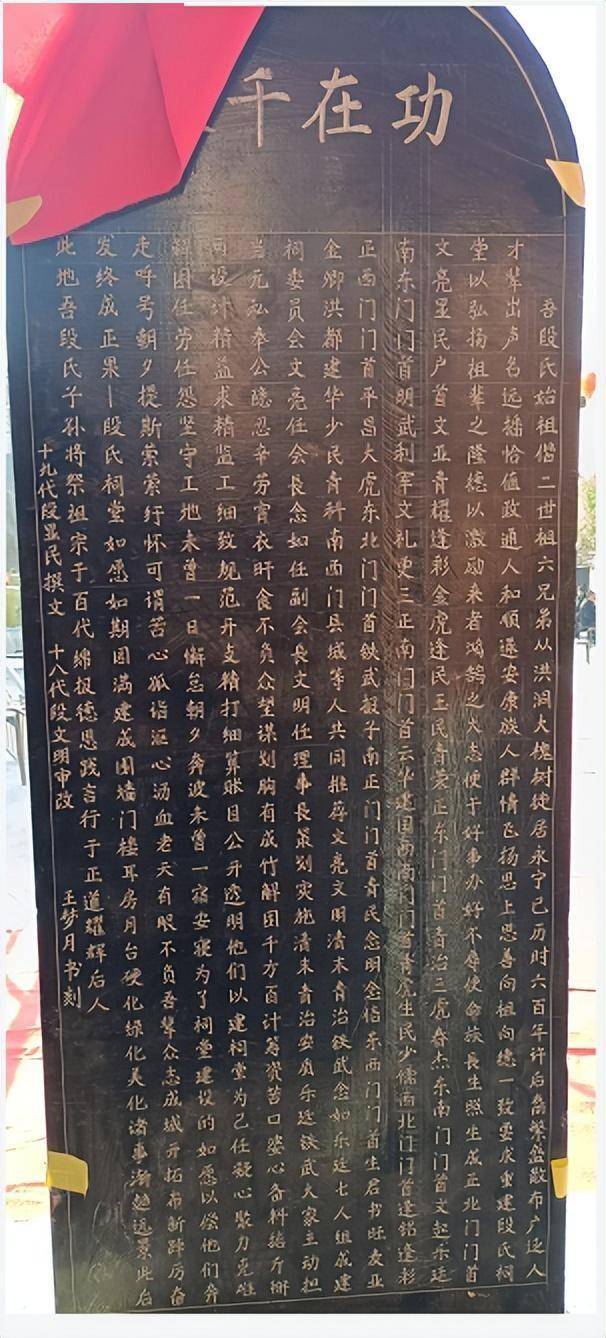 功在千
吾段氏始祖偕二世祖六兄弟从洪洞大槐树徙居永宁已历时六百年许后裔繁盛散布广泛人
才辈出声名远播恰值政通人和顺遂安康族人群情飞扬思上思善向祖向德一致要求重建段氏祠
堂以弘扬祖辈之隆德以激励来者鸿鹄之大志便于好事办好不辱使命族长生照生成正北门门首
文亮显民户首文亚青耀逢彩金虎逢民玉民青荣正东门门首青治三虎春杰东南门门首文起乐廷
南东门门首明武利军文礼更三正南门门首云华建国西南门门首青虎生民少儒西北门门首逢铭逢彩
正西门门首平昌大虎东北门门首铁武报子南正门门首青民念明念信东西门门首生君书旺友亚
金卿洪都建华少民青科南西门县城等人共同推荐文亮文明清末青治铁武念如乐廷七人组成建
祠委员会文亮任会长念如任副会长文明任理事长策划实施清末青治安质乐廷铁武大家主动担
当无私奉公隐忍辛劳宵衣旰食不负众望谋划胸有成竹解困千方百计筹资苦口婆心备料结斤掰
两设计精益求精监工细致规范开支精打细算账目公开透明他们以建祠堂为己任凝心聚力克难
解困任劳任怨坚守工地未曾一日懈怠朝夕奔波未曾一宿安寝为了祠堂建设的如愿以偿他们奔
走呼号朝夕提斯萦萦纡怀可谓苦心孤诣沤心沥血老天有眼不负吾辈众志成城开拓布新踔厉奋
发终成正果—段氏祠堂如愿如期圆满建成围墙门楼耳房月台硬化绿化美化诸事渐趋远景此后
此地吾段氏子孙将祭祖宗于百代绵报德恩践言行于正道耀辉后人
十九代段显民撰文 十八代段文明审改 王梦月书刻